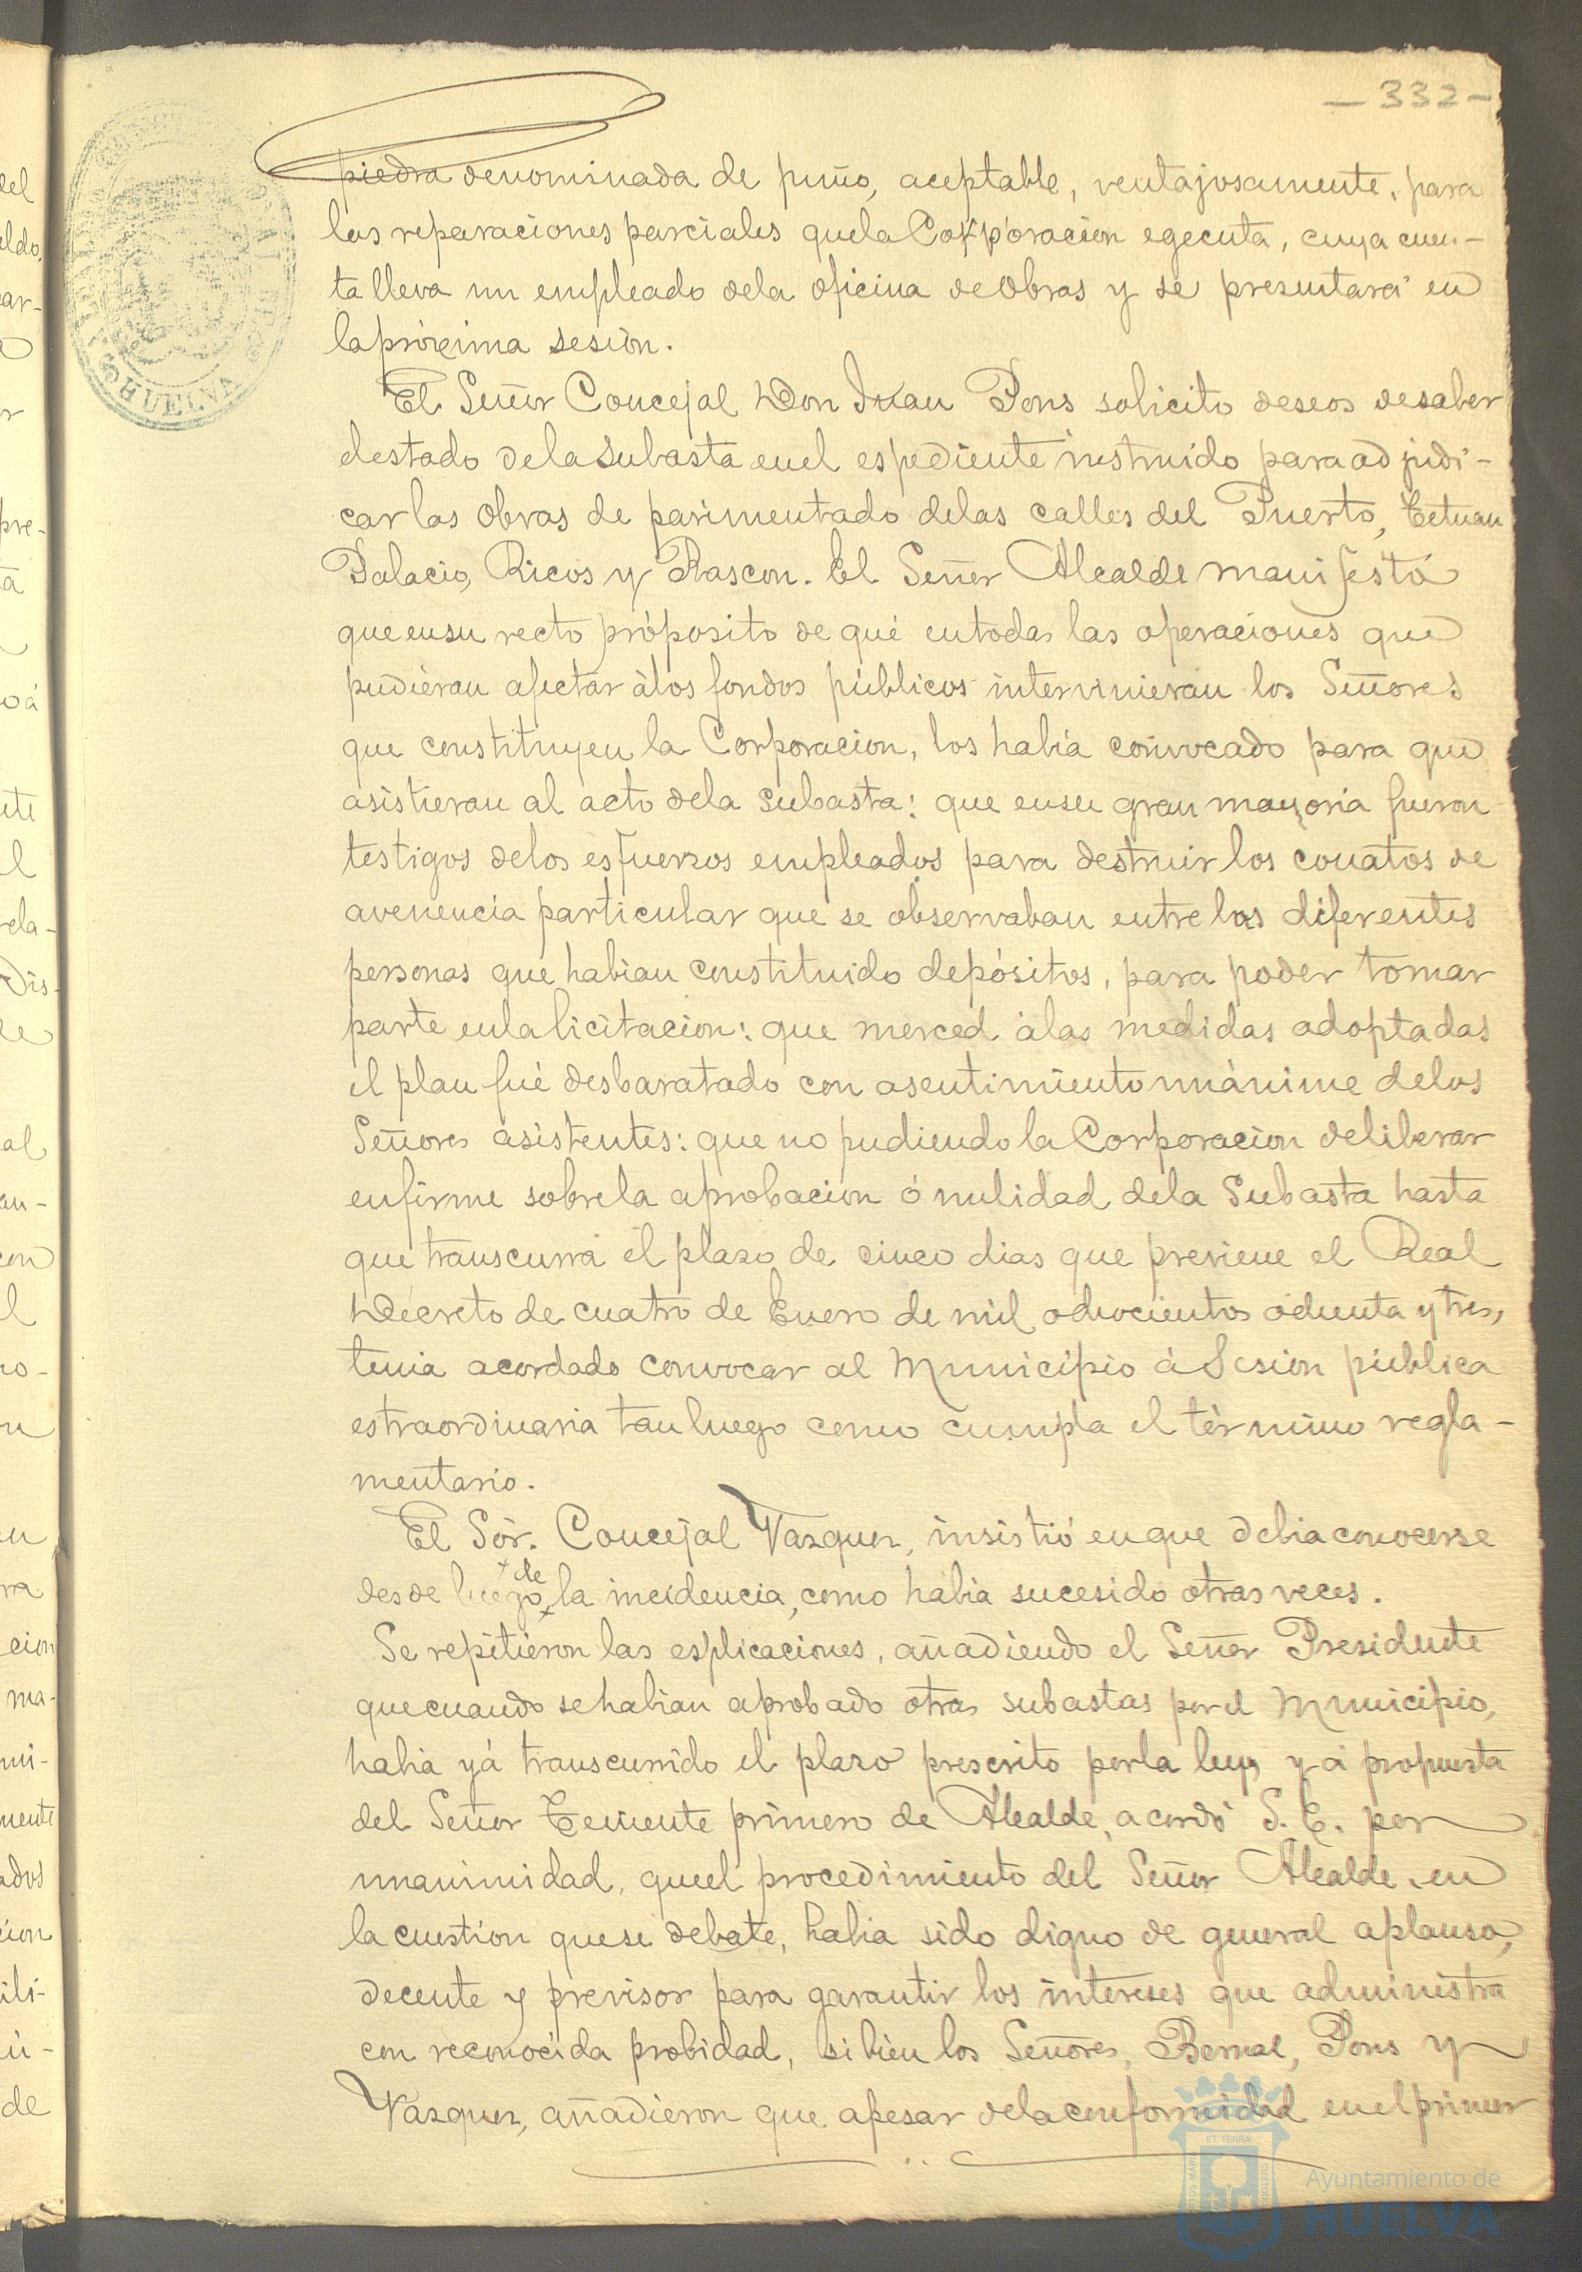 — 332 —
piedra denominada de puño, aceptable, ventajosamente, para
las reparaciones parciales que la Corporacion egecuta, cuya cuen-
ta lleva un empleado dela oficina de Obras y se presentará en
la próxima sesión.
El Señor Concejal Don Juan Pons solicito deseos de saber
el estado de la Subasta en el espediente instruido para adjudi-
car las Obras de pavimentado delas calles del Puerto, Tetuan
Palacio, Ricos y Rascon. El Señor Alcalde manifestó
que en su recto próposito de qué en todas las operaciones que
pudiéran afectar á los fondos públicos intervinieran los Señores
que constituyen la Corporacion, los había convocado para que
asistieran al acto dela subasta: que en su gran mayoria fueron
testigos delos esfuerzos empleados para destruir los conatos de
avenencia particular que se observaban entre las diferentes
personas que habian constituido depósitos, para poder tomar
parte en la licitacion: que merced á las medidas adoptadas
el plan fué desbaratado con asentimiento unánime delos
Señores asistentes: que no pudiendo la Corporacion deliberar
en firme sobre la aprobacion ó nulidad dela Subasta hasta
que transcurra el plazo de cinco dias que previene el Real
Decreto de cuatro de Enero de mil ochocientos ochenta y tres,
tenia acordado convocar al Municipio á Sesion pública
estraordinaria tan luego como cumpla el término regla-
mentario.
El Sór. Concejal Vazquez, insistió en que debia conocerse
de
desde luego la incidencia, como habia sucesido otras veces.
Se repitiéron las esplicaciones, añadiendo el Señor Presidente
que cuando se habian aprobado otras subastas por el Municipio,
habia yá transcurrido el plazo prescrito por la ley, y á propuesta
del Señor Teniente primero de Alcalde, acordó S. E. por
unanimidad, que el procedimiento del Señor Alcalde, en
la cuestion que se debate, habia sido digno de general aplauso,
decente y previsor para garantir los intereses que administra
con reconocida probidad, si bien los Señores, Bernal, Pons y
Vazquez, añadieron que apesar dela conformidad en el primer
HUELVA
ET TERRÆ
Ayuntamiento de
HUELVA